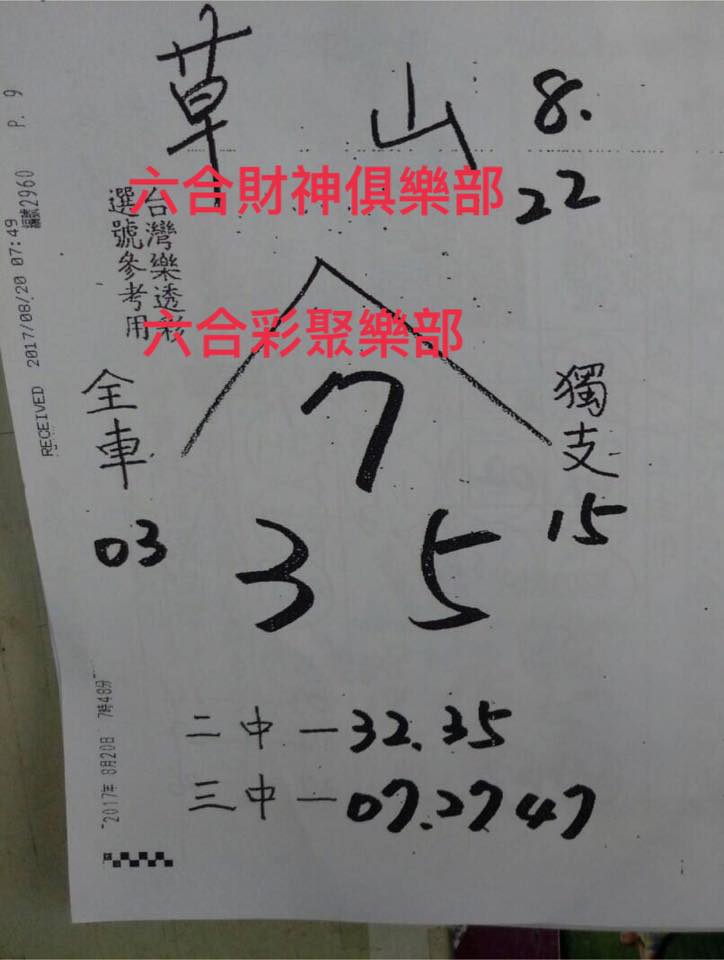 草山 8.
22
六合財神俱樂部
台灣樂透彩
選號參考用
六合彩聚樂部
7
全車
03
3 5
獨支
15
二中—32.35
三中—07.27 47
編號2960 P. 9
RECEIVED 2017/08/20 07:49
2017年 8月20日 7時48分